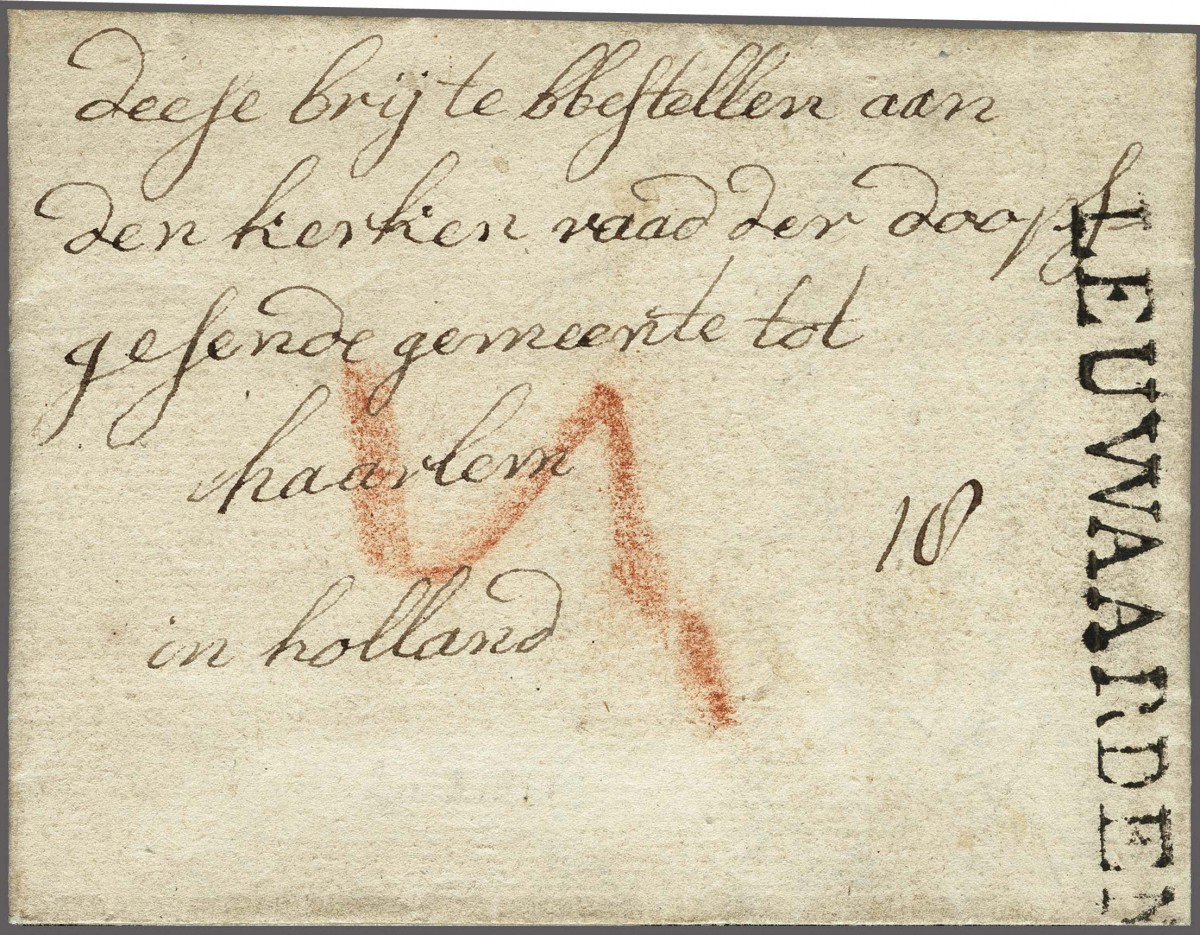 deese brij te bbestellen aan
den kerken raad der doops
gesende gemeente tot
haarlem
in holland
18
LEUWAARDEN